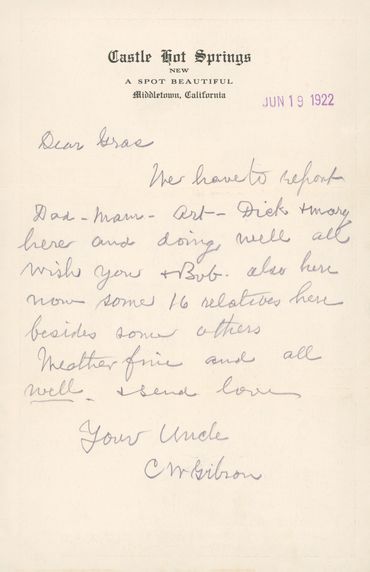 Castle Hot Springs
NEW
A SPOT BEAUTIFUL
Middletown, California
JUN 19 1922
Dear Grac
We have to report
Dad - Mam - Art - Dick & mary
here and doing well all
wish you & Bob. also here
now some 16 relatives here
besides some others
Weather fine and all
well & send love
Your Uncle
C W Gibson